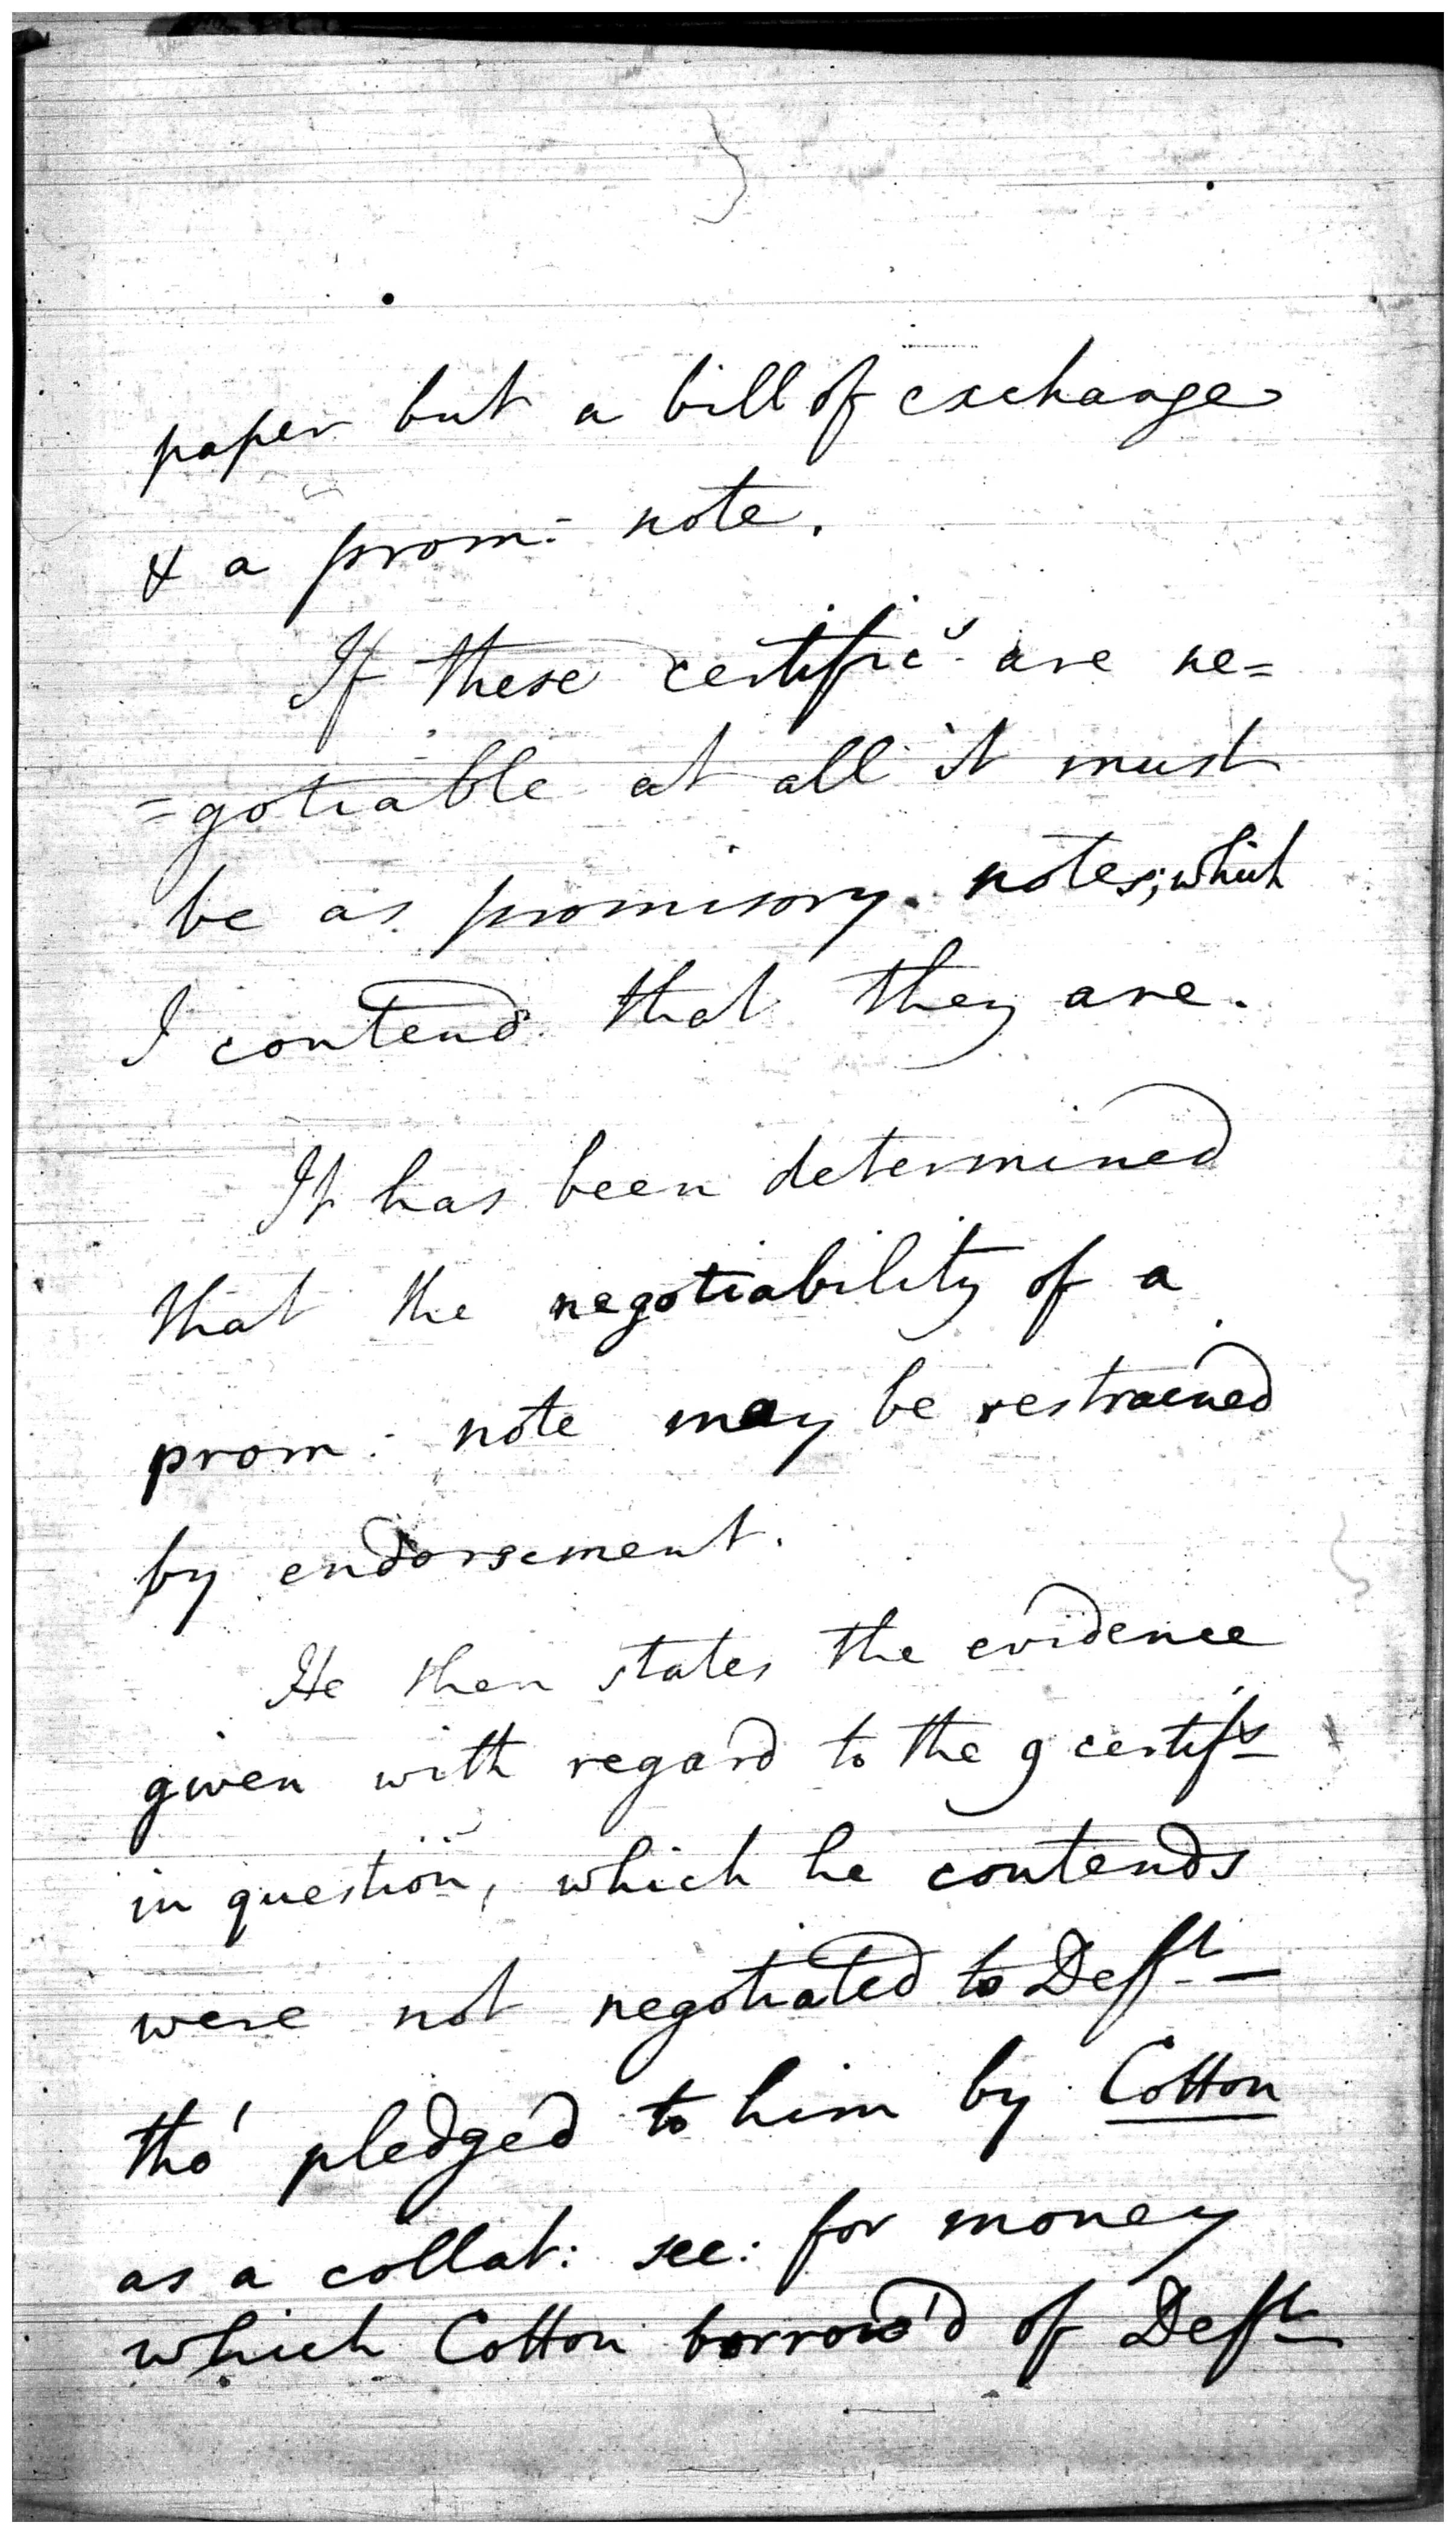 paper but a bill of exchange
& a prom: note.
If these certific.s are ne=
=gotiable at all it must
be as promisory notes; which
I contend that they are.
It has been determined
that the negotiability of a
prom: note may be restrained
by endorsement.
He then states the evidence
given with regard to the 9 certifs
in question, which he contends
were not negotiated to Defft
tho' pledged to him by Cotton
as a collat: sec: for money
which Cotton borrow'd of Defft